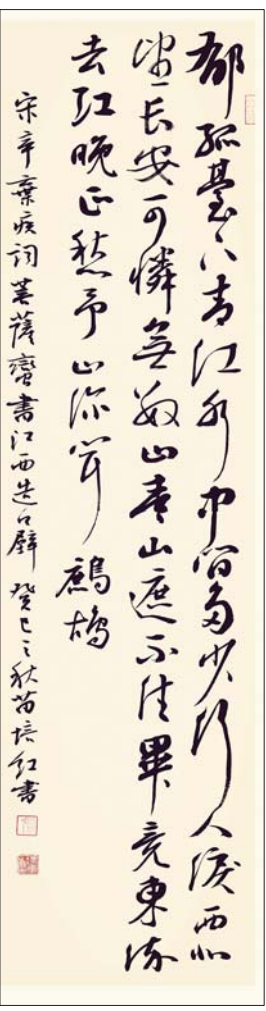 郁孤臺下青江水中間多少行人淚西北
望長安可憐無數山青山遮不住畢竟東流
去江晚正愁予山深聞鷓鴣
宋辛棄疾詞菩薩蠻書江西造口壁 癸巳之秋苗培紅書